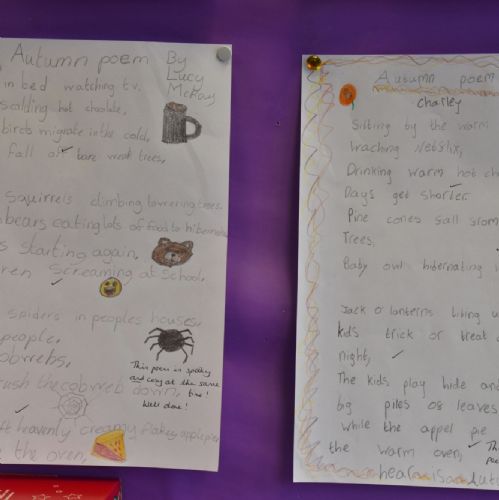 Autumn poem By
Lucy
McKay
in bed watching t.v.
scalding hot choclate,
birds migrate in the cold,
fall off bare weak trees,
squirrels climbing towering trees.
bears eating lots of food to hibernate
starting again.
screaming at school.
spiders in peoples houses,
people.
cobwebs,
the cobweb down,
This poem is spooky
and cosy at the same
time!
Well done!
heavenly creamy flakey applepies
the oven,
Autumn poem
Charley
Sitting by the warm
waching Netflix,
Drinking warm hot
Days get shorter.
Pine cones fall from
Trees,
Baby owl hibernating
Jack o' lanterns
kids trick or treat
night,
The kids play hide and
big piles of leaves
while the appel pie
the warm oven,